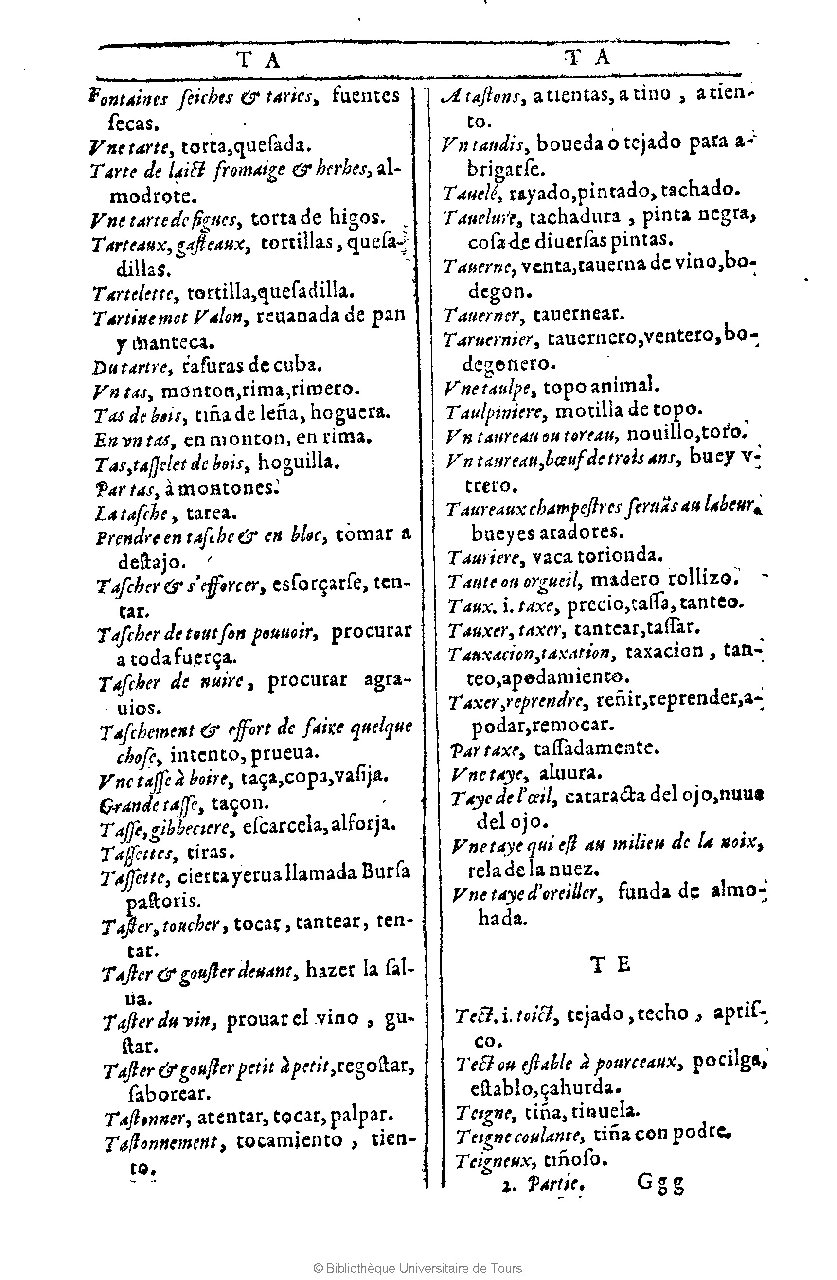 T A
Fontaines seiches & taries, fuentes
secas.
Vne tarte, torta,quesada.
Tarte de laict fromaige & herbes, al-
modrote.
Vne tarte de figues, torta de higos.
Tarteaux, gasteaux, tortillas, quesa-
dillas.
Tartelette, tortilla,quesadilla.
Tartine mot Valon, reuanada de pan
y manteca.
Du tartre, rasuras de cuba.
Vn tas, monton,rima,rimero.
Tas de bois, tiña de leña, hoguera.
En vn tas, en monton, en rima.
Tas,tasselet de bois, hoguilla.
Par tas, à montones.
La tasche, tarea.
Prendre en tasche & en bloc, tomar a
destajo.
Tascher & s'efforcer, esforçarse, ten-
tar.
Tascher de tout son pouuoir, procurar
a toda fuerça.
Tascher de nuire, procurar agra-
uios.
Taschement & effort de faire quelque
chose, intento, prueua.
Vne tasse à boire, taça,copa,vasija.
Grande tasse, taçon.
Tasse, gibbeciere, escarcela, alforja.
Tassettes, tiras.
Tassette, cierta yerua llamada Bursa
pastoris.
Taster, toucher, tocar, tantear, ten-
tar.
Taster & gouster deuant, hazer la sal-
ua.
Taster du vin, prouar el vino, gu-
star.
Taster & gouster petit à petit,regostar,
saborear.
Tastonner, atentar, tocar, palpar.
Tastonnement, tocamiento, tien-
to.
T A
A tastons, a tientas, a tino, a tien-
to.
Vn taudis, boueda o tejado para a-
brigarse.
Tauelé, rayado,pintado,tachado.
Tauelure, tachadura, pinta negra,
cosa de diuersas pintas.
Tauerne, venta,tauerna de vino,bo-
degon.
Tauerner, tauernear.
Taruernier, tauernero,ventero,bo-
degonero.
Vne taulpe, topo animal.
Taulpiniere, motilla de topo.
Vn taureau ou toreau, nouillo,toro.
Vn taureau,bœuf de trois ans, buey v-
trero.
Taureaux champestres seruãs au labeur,
bueyes aradores.
Tauriere, vaca torionda.
Taute ou orgueil, madero rollizo.
Taux. i. taxe, precio,tassa,tanteo.
Tauxer, taxer, tantear,tassar.
Tauxacion,taxation, taxacion, tan-
teo,apodamiento.
Taxer,reprendre, reñir,reprender,a-
podar,remocar.
Par taxe, tassadamente.
Vne taye, aluura.
Taye de l'œil, cataracta del ojo,nuue
del ojo.
Vne taye qui est au milieu de la noix,
tela de la nuez.
Vne taye d'oreiller, funda de almo-
hada.
T E
Tect. i. toict, tejado, techo, apris-
co.
Tect ou estable à pourceaux, pocilga,
establo,çahurda.
Teigne, tiña,tinuela.
Teigne coulante, tiña con podre.
Teigneux, tiñoso.
2. Partie. Ggg
© Bibliothèque Universitaire de Tours